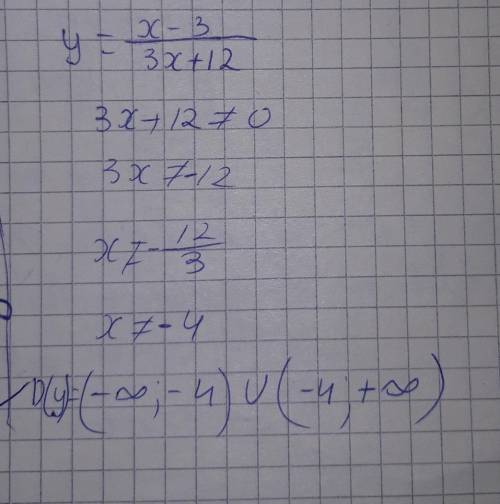 y = \frac{x-3}{3x+12}
3x+12 ≠ 0
3x ≠ -12
x ≠ -\frac{12}{3}
x ≠ -4
D(y)=(-∞; -4) ∪ (-4; +∞)